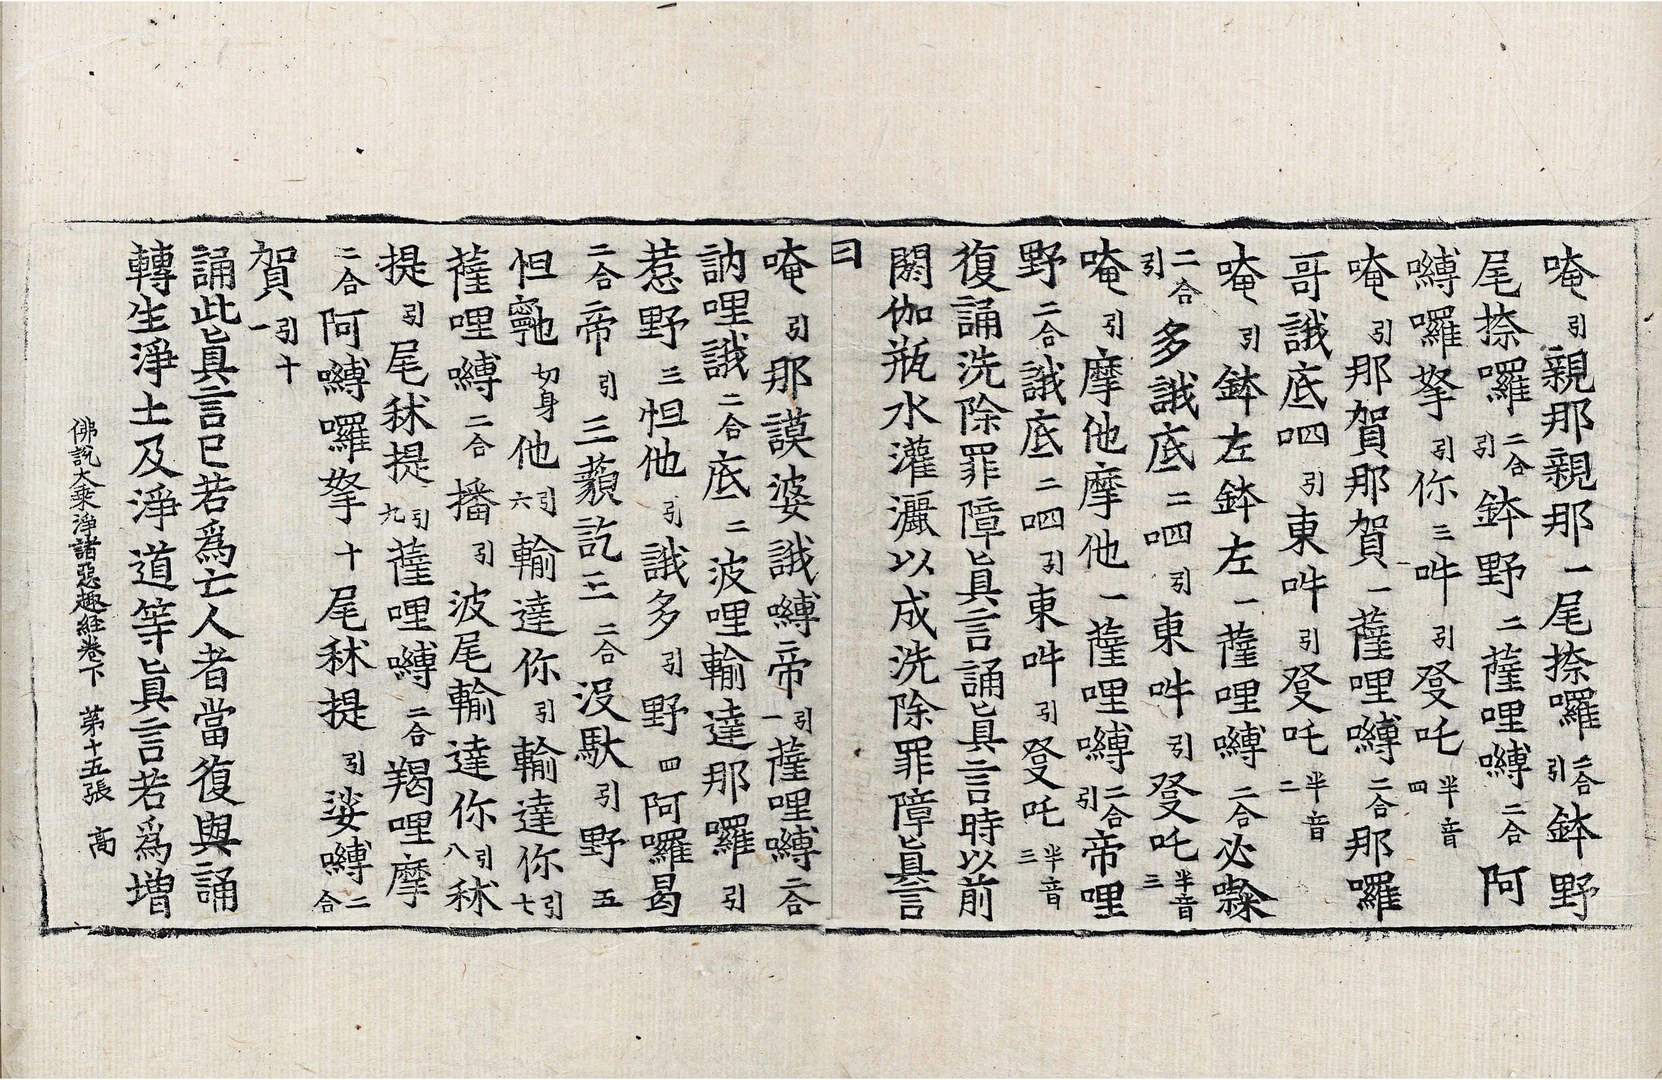 唵引親那親那一尾捺囉二合引鉢野
尾捺囉二合引鉢野二薩哩嚩二合阿
嚩囉拏引你三吽引癹吒半音四
唵引那賀那賀一薩哩嚩二合那囉
哥誐底呬引東吽引癹吒半音二
唵引鉢左鉢左一薩哩嚩二合必𠼝
二合引多誐底二呬引東吽引癹吒半音三
唵引摩他摩他一薩哩嚩二合引帝哩
野二合誐底二呬引東吽引癹吒半音三
復誦洗除罪障眞言誦眞言時以前
閼伽瓶水灌灑以成洗除罪障眞言
曰
唵引那謨婆誐嚩帝引一薩哩嚩二合
訥哩誐二合底二波哩輸達那囉引
惹野三怛他引誐多引野四阿囉曷
二合帝引三藐訖三二合沒馱引野五
怛寧也切身他引六輸達你引輸達你引七
薩哩嚩二合播引波尾輸達你引八秫
提引尾秫提引九薩哩嚩二合羯哩摩
二合阿嚩囉拏十尾秫提引娑嚩二合
賀引十一
誦此眞言已若爲亡人者當復與誦
轉生淨土及淨道等眞言若爲增
佛說大乘淨諸惡趣經卷下 第十五張 高